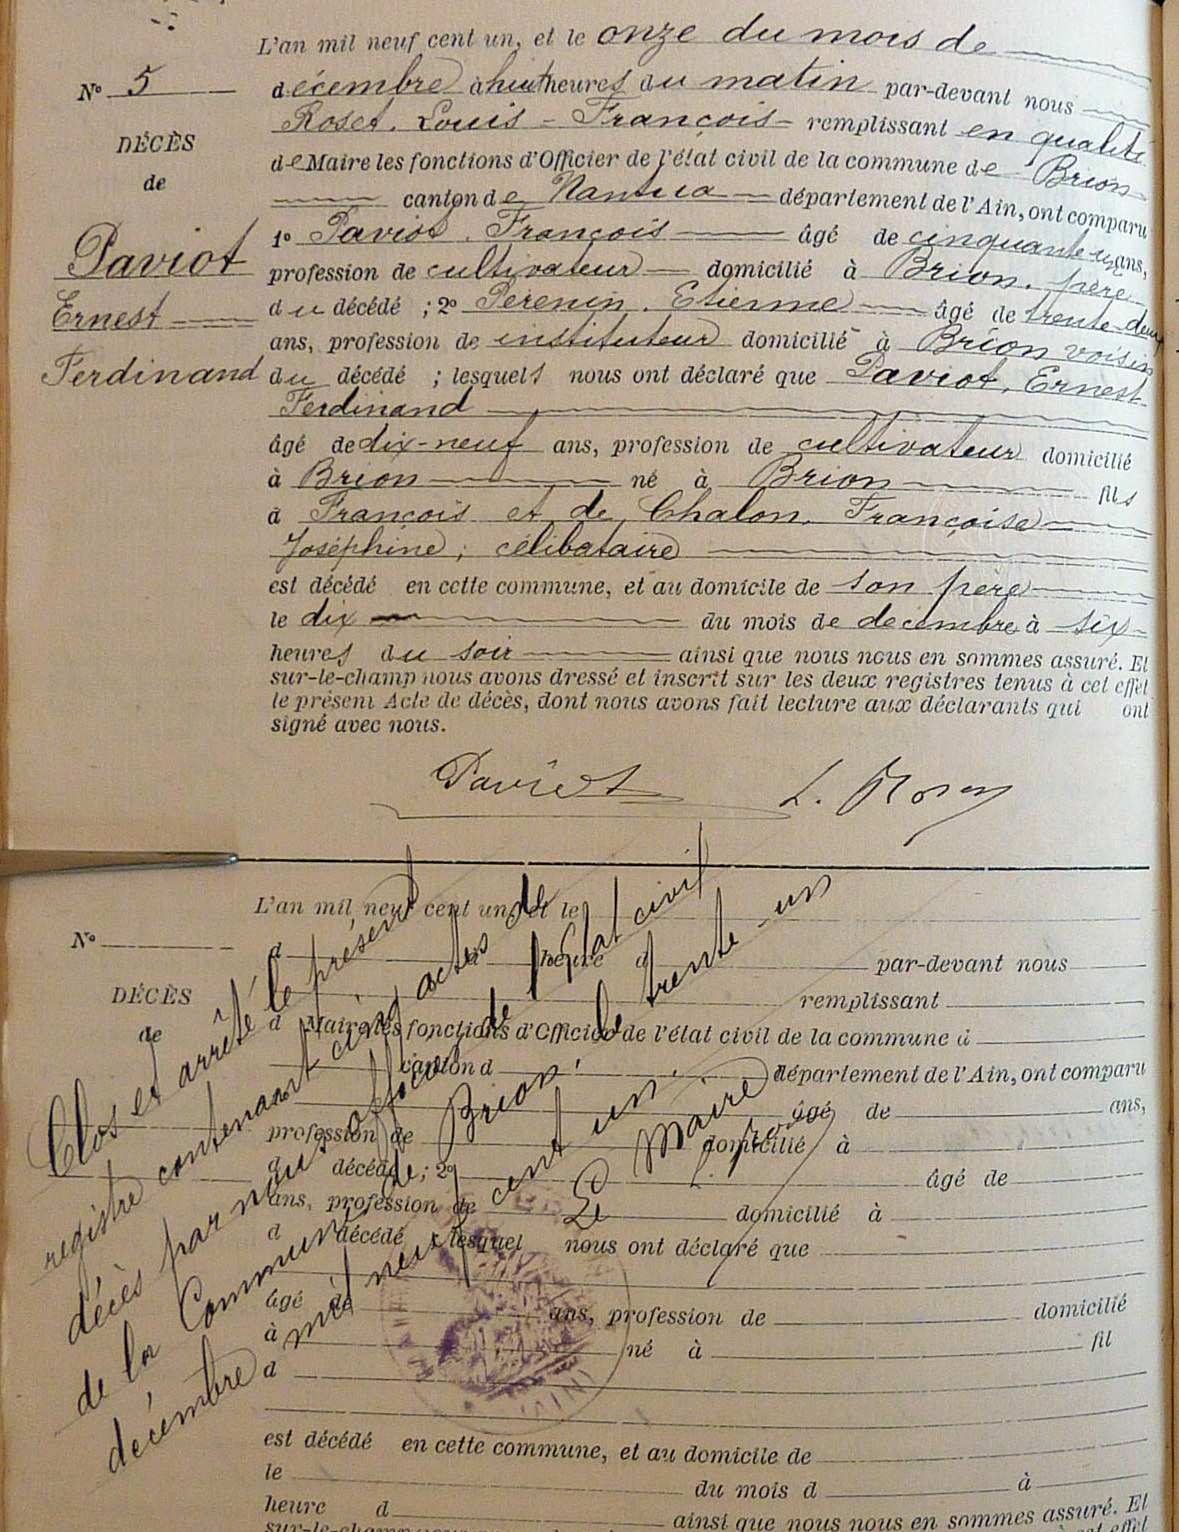 L'an mil neuf cent un, et le onze du mois de
N° 5
décembre à huit heures du matin par-devant nous
Roset, Louis - François - remplissant en qualité
DÉCÈS
de
de Maire les fonctions d'Officier de l'état civil de la commune de Brion
canton de Nantua département de l'Ain, ont comparu
Paviot
Ernest
Ferdinand
1° Paviot, François âgé de cinquante-un ans,
profession de cultivateur domicilié à Brion, père
du décédé ; 2° Perenin, Etienne âgé de trente-deux
ans, profession de instituteur domicilié à Brion voisin
du décédé ; lesquels nous ont déclaré que Paviot, Ernest
Ferdinand
âgé de dix-neuf ans, profession de cultivateur domicilié
à Brion né à Brion fils
à François et de Chalon, Françoise
Joséphine, célibataire
est décédé en cette commune, et au domicile de son père
le dix du mois de décembre à six
heures du soir ainsi que nous nous en sommes assuré. Et
sur-le-champ nous avons dressé et inscrit sur les deux registres tenus à cet effet
le présent Acte de décès, dont nous avons fait lecture aux déclarants qui ont
signé avec nous.
Paviot L. Roset
L'an mil neuf cent un, et le
N°
d à heure d par-devant nous
DÉCÈS
de
remplissant
d Maire les fonctions d'Officier de l'état civil de la commune d
canton d département de l'Ain, ont comparu
âgé de ans,
profession de domicilié à
d décédé ; 2° âgé de
ans, profession de domicilié à
d décédé lesquel nous ont déclaré que
âgé de ans, profession de domicilié
à né à fil
d
est décédé en cette commune, et au domicile de
le du mois d à
heure d ainsi que nous nous en sommes assuré. Et
Clos et arrêté le présent
registre contenant cinq actes de
décès par nous officier de l'état civil
de la Commune de Brion, le trente un
décembre mil neuf cent un.
Le Maire